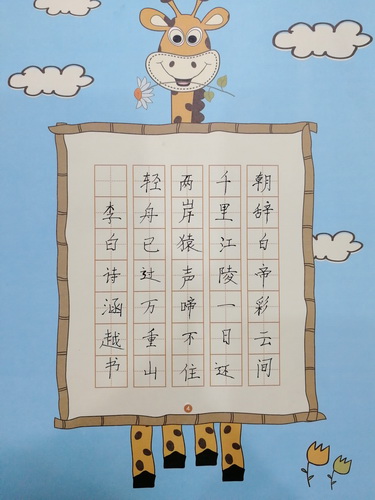 朝辞白帝彩云间
千里江陵一日还
两岸猿声啼不住
轻舟已过万重山
李白诗涵越书
4